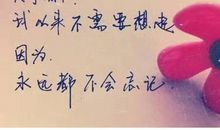 我从来不需要想起
因为.
永远都不会忘记.